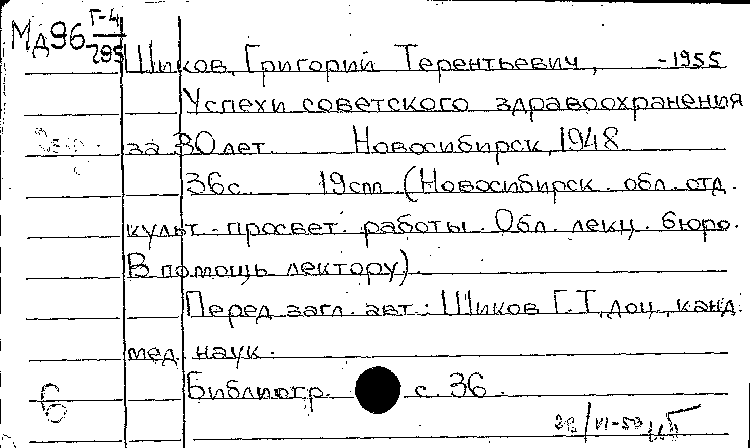 Мд96 Г-4/295
Шиков, Григорий Терентьевич, -1955
Успехи советского здравоохранения
за 30 лет. Новосибирск, 1948
36с. 19см (Новосибирск. обл. отд.
культ.-просвет. работы. Обл. лекц. бюро.
В помощь лектору).
Перед загл. авт.: Шиков Г.Т., доц., канд.
мед. наук.
Библиогр. с. 36.
6